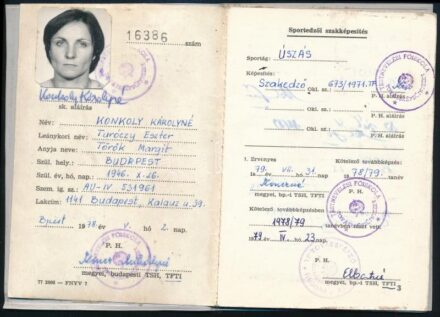 16386 szám
Konkoly Károlyné
sk. aláírás
Név: KONKOLY KÁROLYNÉ
Leánykori név: Turóczy Eszter
Anyja neve: Török Margit
Szül. hely: BUDAPEST
Szül. év, hó, nap: 1946. X. 26.
Szem. ig. sz.: AU-IV 531961
Lakcím: 1141 Budapest, Kalauz u 39.
Bpest 1978. év V. hó 2. nap.
P. H.
megyei, budapesti TSH, TFTI
77 2000 — FNYV 7
Sportedzői szakképesítés
Sportág: ÚSZÁS
Képesítés:
Szakedző Okl. sz.: 673/1971.TF
P. H. aláírás
Okl. sz.:
P. H. aláírás
Okl. sz.:
P. H. aláírás
TESTNEVELÉSI FŐISKOLA
1. Érvényes Kötelező továbbképzés:
79. év VII. hó 31. 78/79. tanév
megyei, bp.-i TSH, TFTI P. H.
Kötelező továbbképzésben
1978/79 tanévben részt vett.
79 év IV. hó 23 nap.
P. H.
megyei, bp.-i TSH, TFTI
3